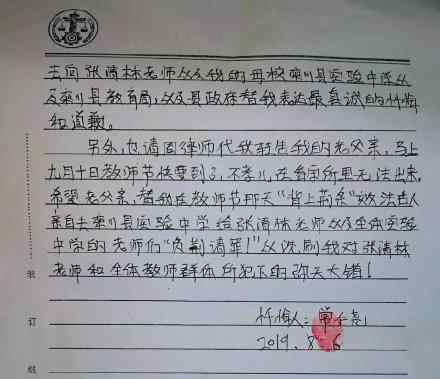 去向张清林老师以及我的母校栾川县实验中学以
及栾川县教育局，以及县政府替我表达最真诚的忏悔
和道歉。
另外，也请周律师代我转告我的老父亲，马上
九月十日教师节快要到了，不孝儿，在看守所里无法出来，
希望老父亲，替我在教师节那天"背上荆条"效法古人
亲自去栾川县实验中学给张清林老师以及全体实验
中学的老师们"负荆请罪！"以洗刷我对张清林
老师和全体教师群体所犯下的弥天大错！
忏悔人：常仁尧
2019.8.6
装
订
线